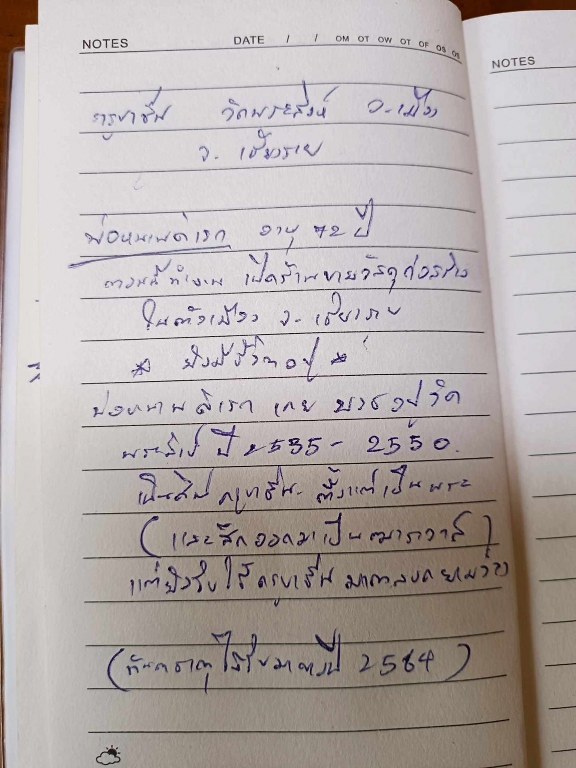 NOTES
DATE / / OM OT OW OT OF OS OS
NOTES
ครูบาชัน วัดพระสิงห์ อ.เมือง
จ. เชียงราย
พ่อหนานดิเรก อายุ 72 ปี
ตอนนี้ทำงาน เปิดร้านขายวัสดุก่อสร้าง
ในตัวเมือง จ. เชียงราย
* ยังมีชีวิตอยู่ *
พ่อหนานดิเรก เคย บวชอยู่วัด
พระสิงห์ ปี 2535 - 2550
เป็นศิษ ครูบาชัน ตั้งแต่เป็นพระ
(และสึกออกมาเป็นฆาราวาส)
แต่ยังรับใช้ครูบาชัน มาตลอด
( ได้รับมาตอนปี 2564 )